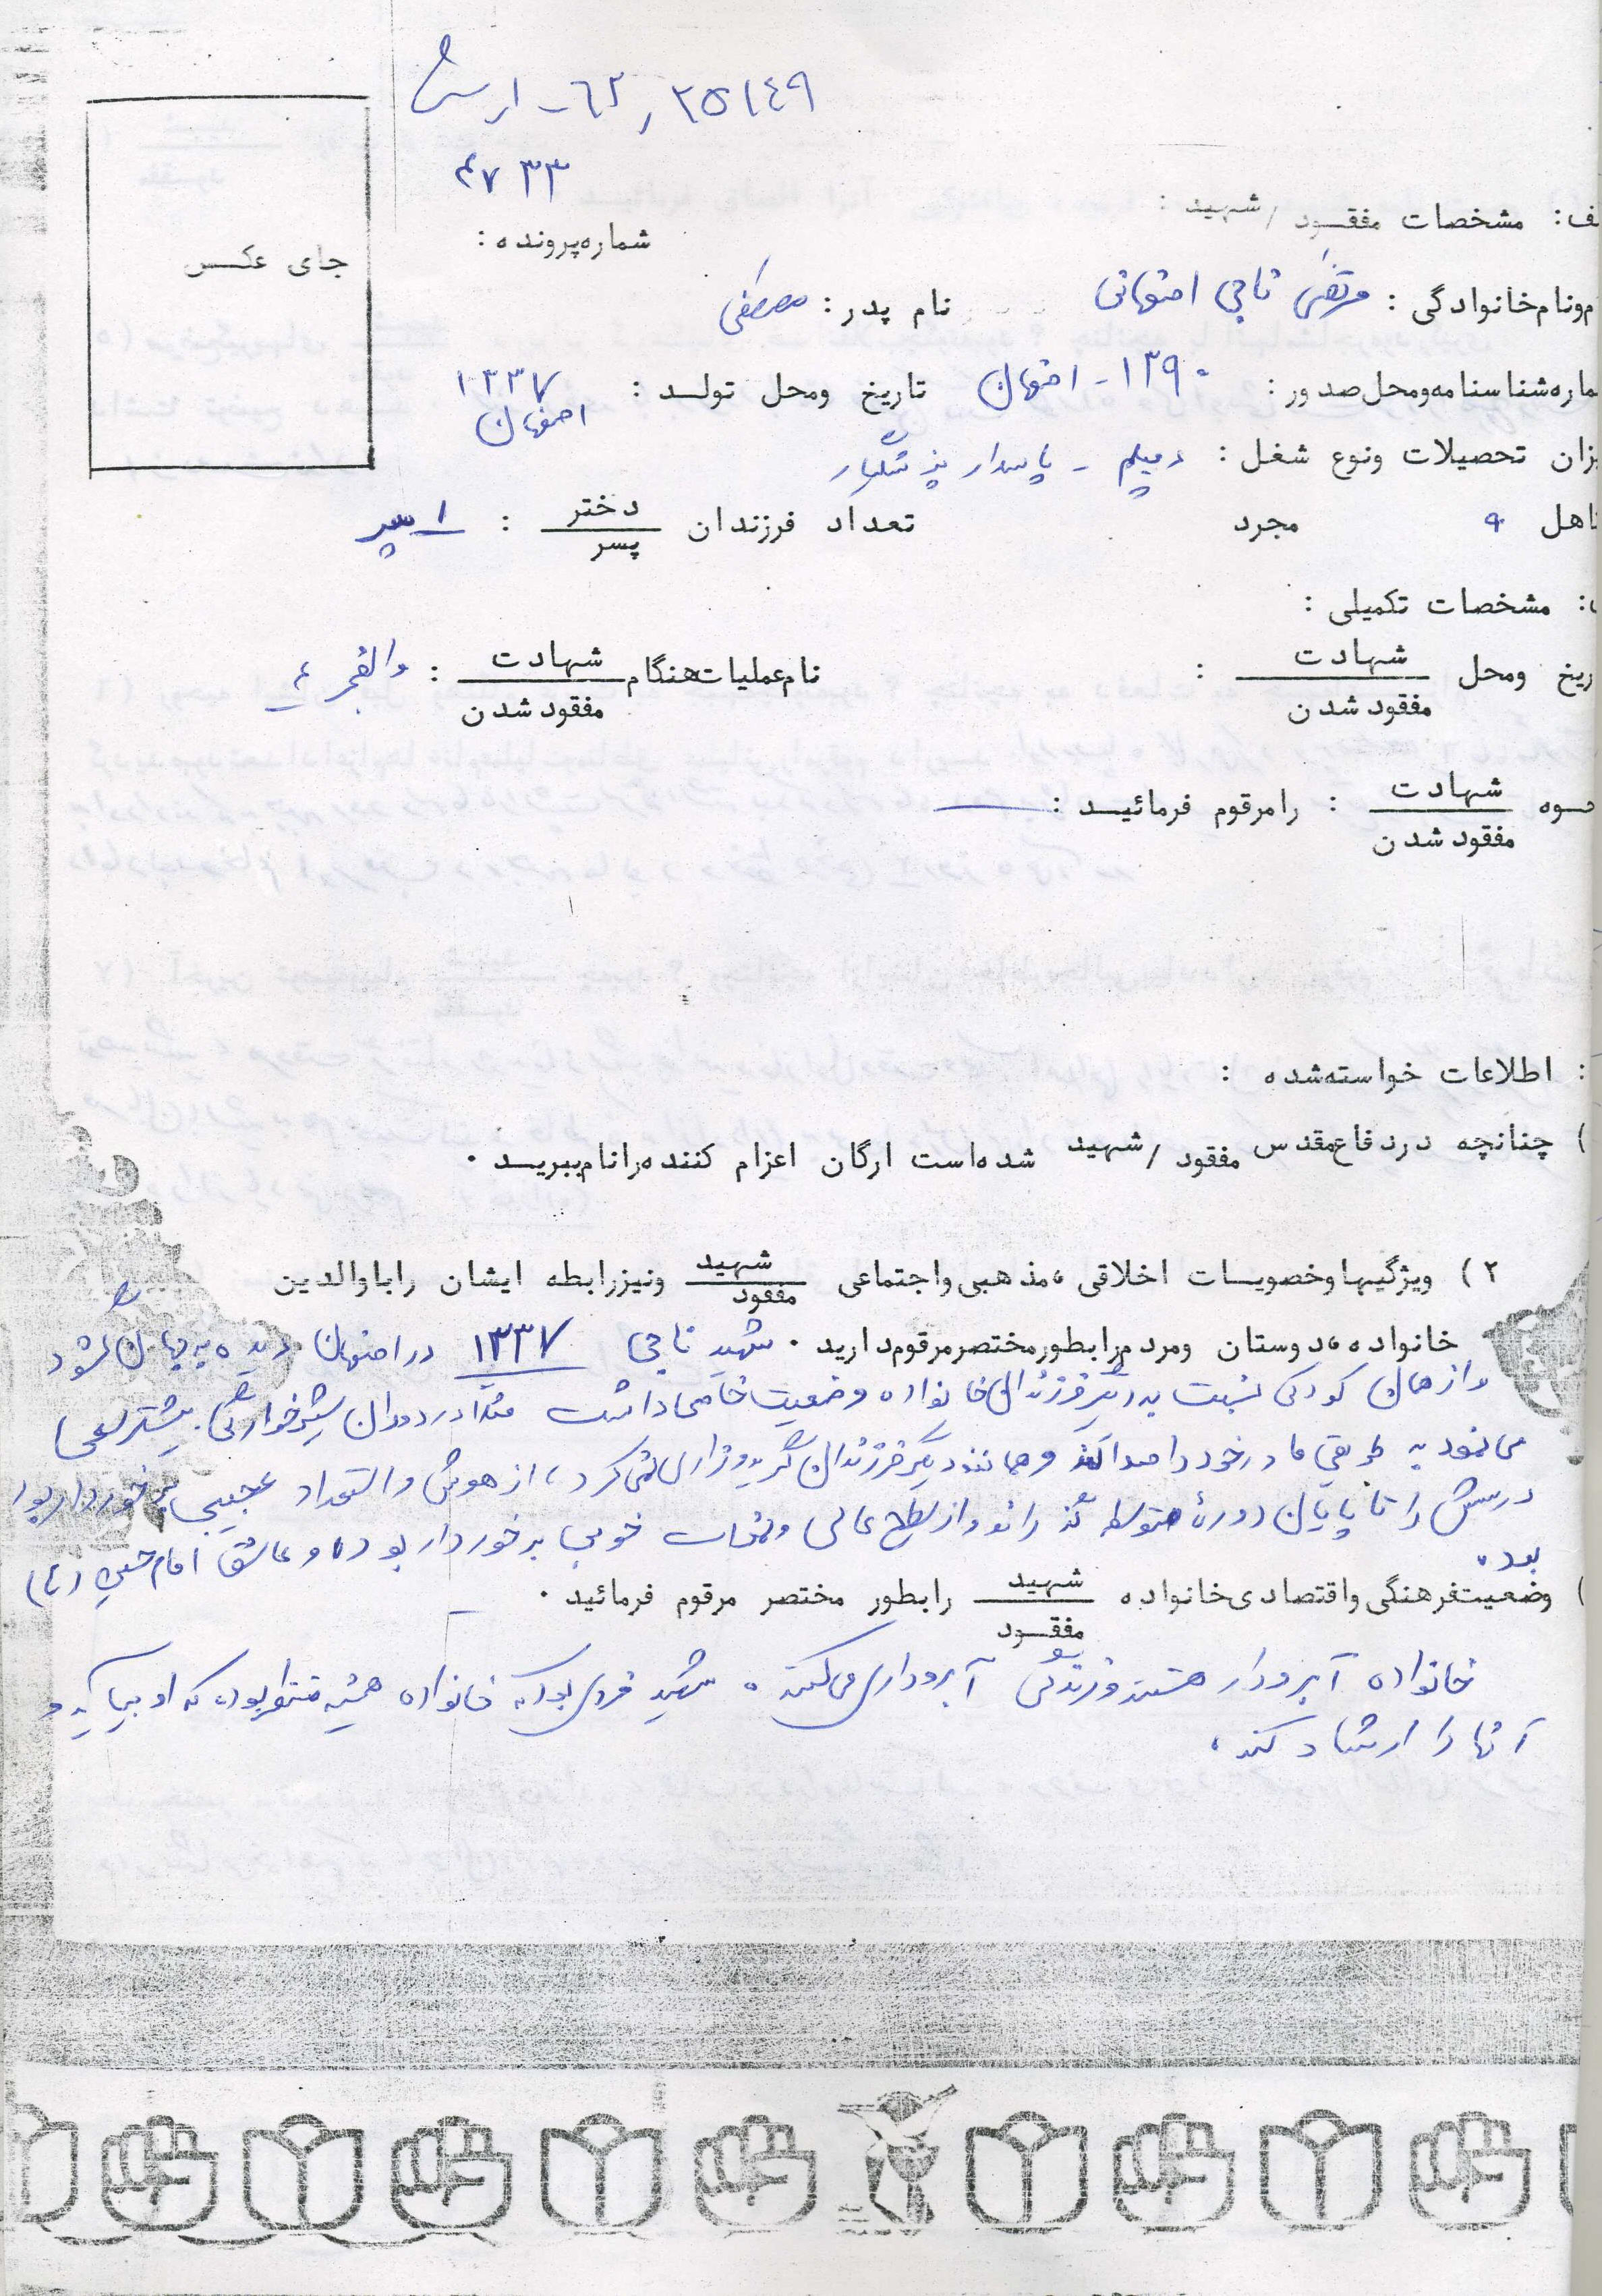 ۲۵۱٤۹ ر ٦۲ - ارس
۴۷۳۳
ف: مشخصات مفقود / شهید :
شماره پرونده :
جای عکس
م و نام خانوادگی : مرتضی تاجی اصفهانی نام پدر : مصطفی
ماره شناسنامه و محل صدور : ۱۳۹۰ - اصفهان تاریخ و محل تولد : ۱۳۳۷
اصفهان
یزان تحصیلات و نوع شغل : دیپلم - پاسدار پزشکیار
اهل مجرد تعداد فرزندان دختر / پسر : ۱ پسر
: مشخصات تکمیلی :
ریخ و محل شهادت / مفقود شدن : نام عملیات هنگام شهادت / مفقود شدن : والفجر ۴
حوه شهادت / مفقود شدن : را مرقوم فرمائید :
: اطلاعات خواسته شده :
) چنانچه در دفاع مقدس مفقود / شهید شده است ارگان اعزام کننده را نام ببرید .
۲ ) ویژگیها و خصویسات اخلاقی ، مذهبی و اجتماعی شهید / مفقود و نیز رابطه ایشان را با والدین
خانواده ، دوستان و مردم را بطور مختصر مرقوم دارید . شهید تاجی ۱۳۳۷ در اصفهان دیده به جهان گشود
و از همان کودکی نسبت به دیگر فرزندان خانواده وضعیت خاصی داشت مثلا در دوران شیرخوارگی بیشتر سعی
می نمود به طریقی مادر خود را صدا کند و همانند دیگر فرزندان گریه و زاری نمی کرد ، از هوش و استعداد عجیبی برخوردار بود
درسش را تا پایان دورهٔ متوسطه گذراند و از سطح عالی و نمرات خوبی برخوردار بوده و عاشق امام حسین (ع)
بود .
) وضعیت فرهنگی و اقتصادی خانواده شهید / مفقود را بطور مختصر مرقوم فرمائید .
خانواده آبرودار هستند و زندگی آبروداری می کنند . شهید فردی بود که خانواده همیشه منتظر بوده که او بیاید و
آنها را ارشاد کند .